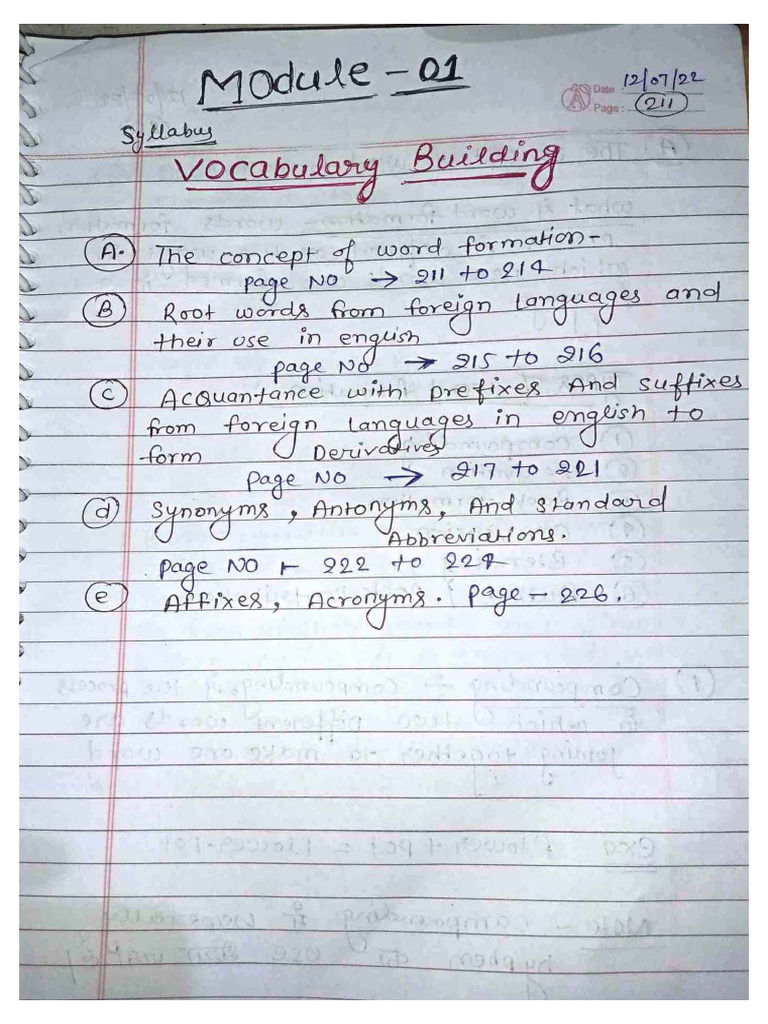 Module - 01
Date : 12/07/22
Page : 211
Syllabus
Vocabulary Building
A. The concept of word formation-
page NO → 211 to 214
B Root words from foreign languages and
their use in english
page No → 215 to 216
C Acquantance with prefixes And suffixes
from foreign languages in english to
form Derivatives
page NO → 217 to 221
d Synonyms, Antonyms, And standard
Abbreviations.
page NO - 222 to 224
e Affixes, Acronyms. page - 226.